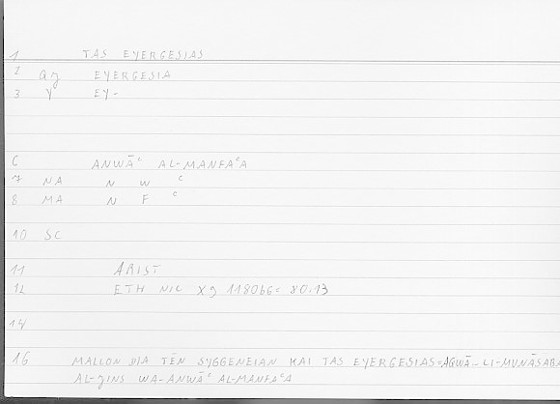 1 TAS EYERGESIAS
2 ag EYERGESIA
3 Y EY-
6 ANWĀᶜ AL-MANFAᶜA
7 NA N W ᶜ
8 MA N F ᶜ
10 SC
11 ARIST
12 ETH NIC X9 1180b6 = 80.13
14
16 MALLON DIA TĒN SYGGENEIAN KAI TAS EYERGESIAS=AGWĀ- LI-MUNĀSABA
AL-GINS WA-ANWĀᶜ AL-MANFAᶜA